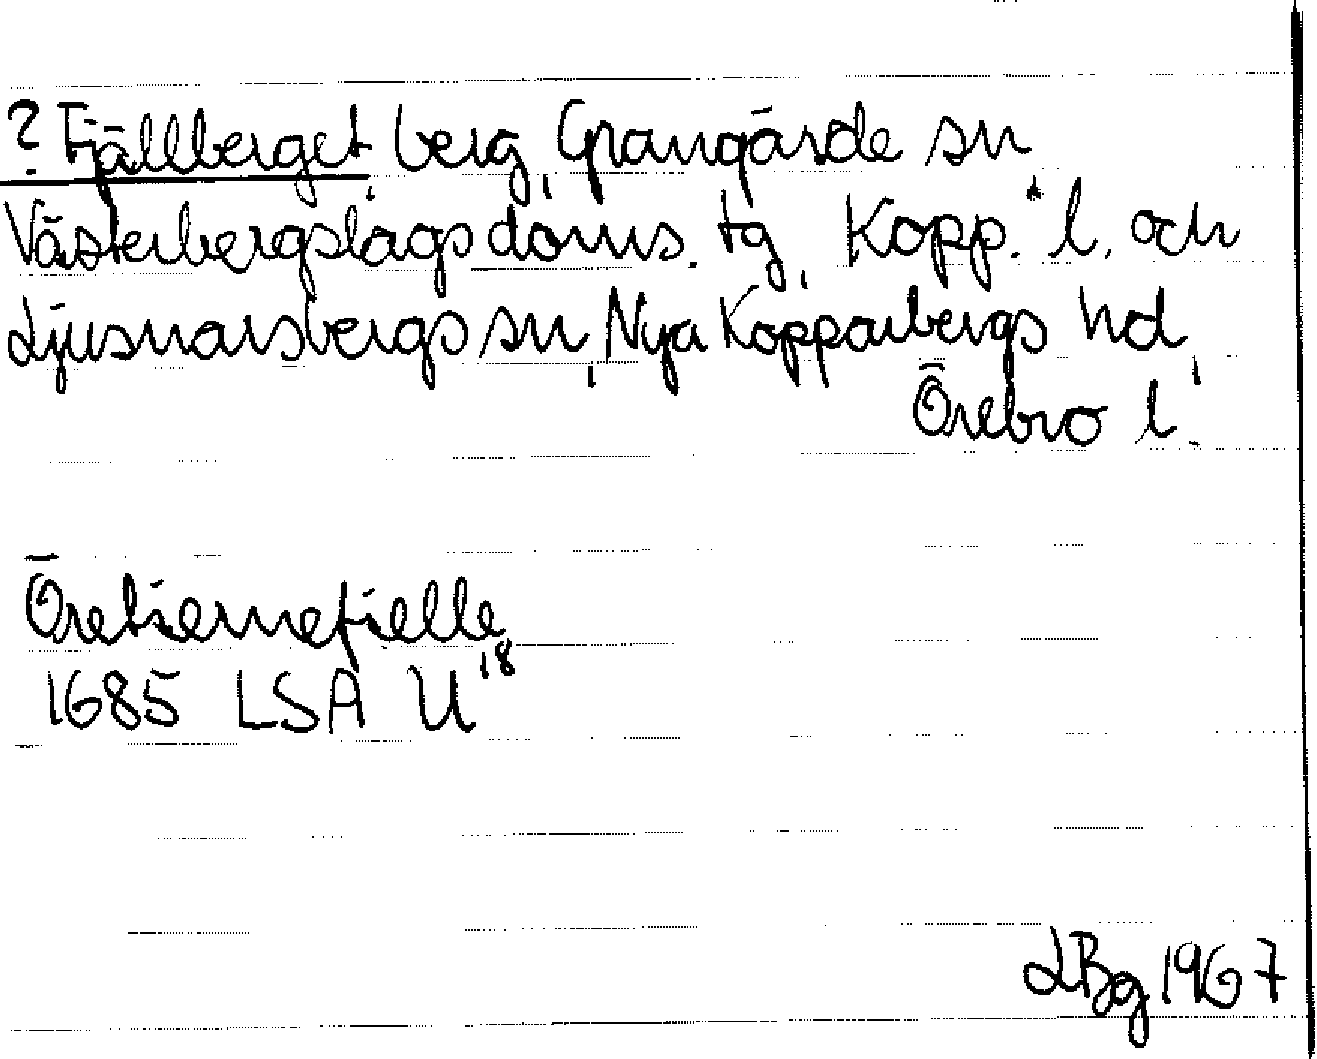 ? Fjällberget berg, Grangärde sn
Västerbergslags doms. tg, Kopp. l. och
Ljusnarsbergs sn, Nya Kopparbergs hd,
Örebro l.
Öretiernefielle
1685 LSA U18
LBg 1967